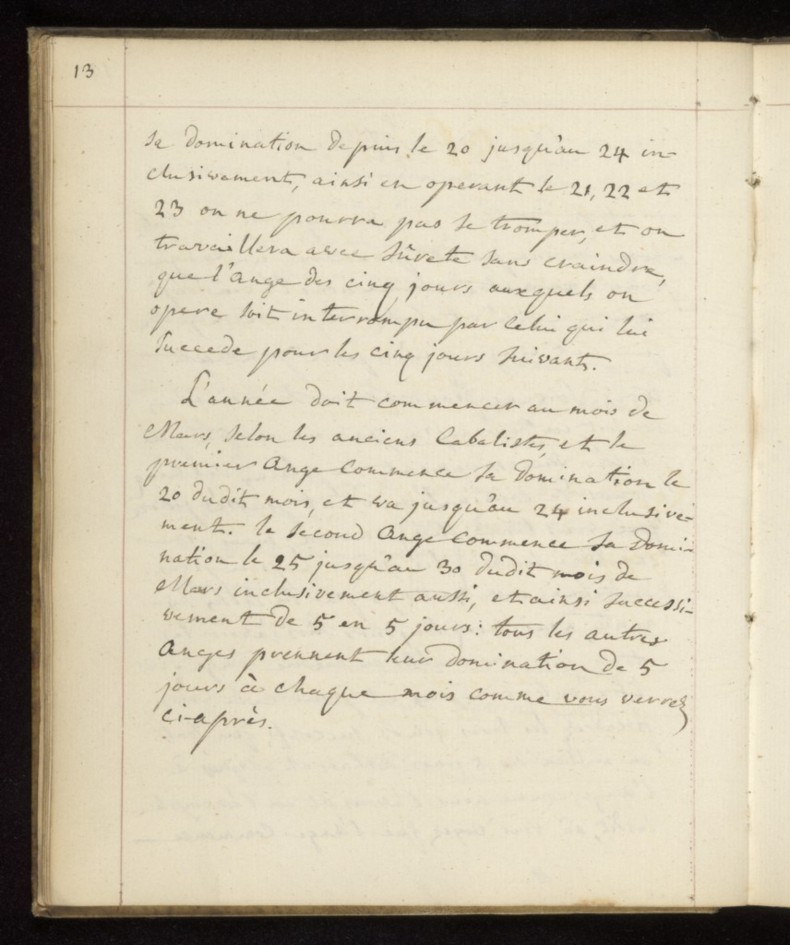 13
sa domination depuis le 20 jusqu'au 24 in-
clusivement, ainsi en operant le 21, 22 et
23 on ne pourra pas se tromper, et on
travaillera avec sûreté sans craindre,
que l'Ange des cinq jours auxquels on
opere soit interrompu par celui qui lui
succede pour les cinq jours suivants.
L'année doit commencer au mois de
Mars, selon les anciens Cabalistes, et le
premier Ange commence sa domination le
20 dudit mois, et va jusqu'au 24 inclusive-
ment. le second Ange commence sa domi-
nation le 25 jusqu'au 30 dudit mois de
Mars inclusivement aussi, et ainsi successi-
vement de 5 en 5 jours: tous les autres
Anges prennent leur domination de 5
jours à chaque mois comme vous verrez
ci-après.